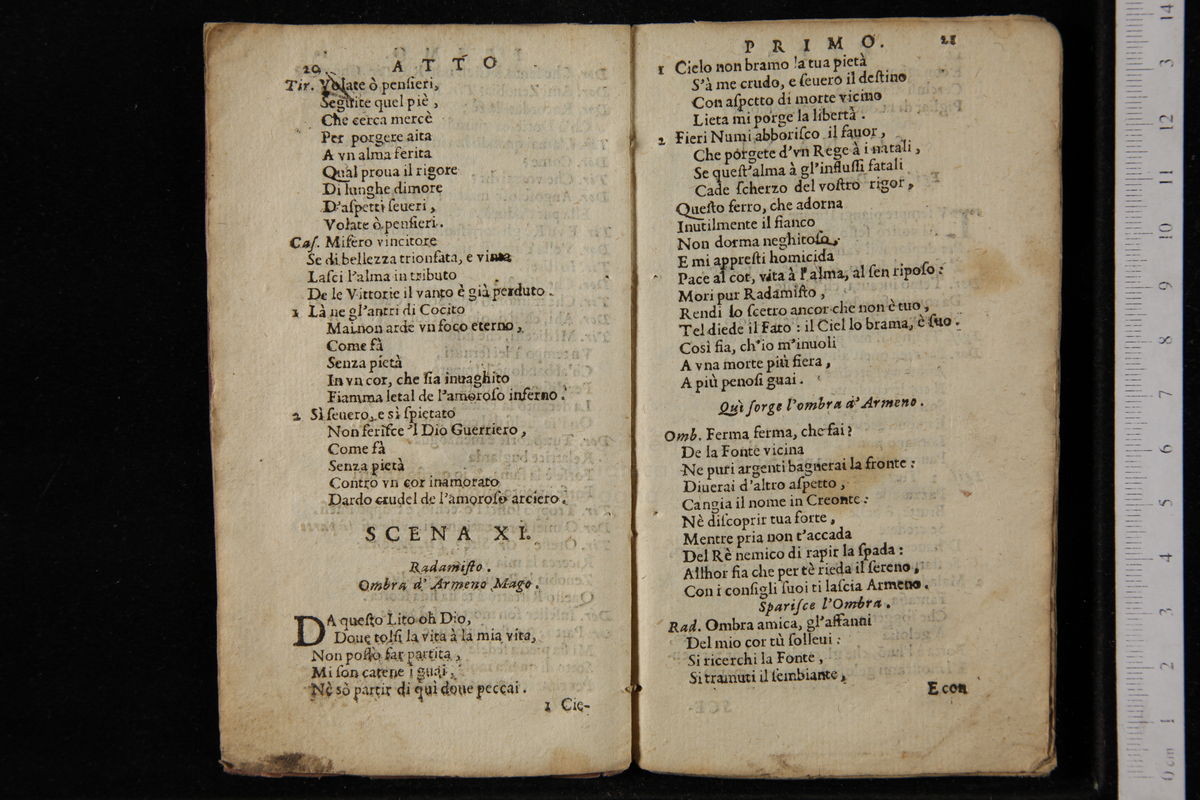 20 ATTO
Tir. Volate ò pensieri,
Seguite quel piè,
Che cerca mercè
Per porgere aita
A vn alma ferita
Qual proua il rigore
Di lunghe dimore
D'aspetti seueri,
Volate ò pensieri.
Cas. Misero vincitore
Se di bellezza trionfata, e vinta
Lasci l'alma in tributo
De le Vittorie il vanto è già perduto.
1 Là ne gl'antri di Cocito
Mai non arde vn foco eterno,
Come fà
Senza pietà
In vn cor, che sia inuaghito
Fiamma letal de l'amoroso inferno.
2 Sì seuero, e sì spietato
Non ferisce 'l Dio Guerriero,
Come fà
Senza pietà
Contro vn cor inamorato
Dardo crudel de l'amoroso arciero.
SCENA XI.
Radamisto.
Ombra d' Armeno Mago.
DA questo Lito oh Dio,
Doue tolsi la vita à la mia vita,
Non posso far partita,
Mi son catene i guai,
Nè sò partir di quì doue peccai.
1 Cie-
PRIMO. 21
1 Cielo non bramo la tua pietà
S'à me crudo, e seuero il destino
Con aspetto di morte vicino
Lieta mi porge la libertà.
2 Fieri Numi abborisco il fauor,
Che porgete d'vn Rege à i natali,
Se quest'alma à gl'influssi fatali
Cade scherzo del vostro rigor,
Questo ferro, che adorna
Inutilmente il fianco
Non dorma neghitoso,
E mi appresti homicida
Pace al cor, vita à l'alma, al sen riposo:
Mori pur Radamisto,
Rendi lo scetro ancor che non è tuo,
Tel diede il Fato: il Ciel lo brama, è suo.
Così fia, ch'io m'inuoli
A vna morte più fiera,
A più penosi guai.
Quì sorge l'ombra d' Armeno.
Omb. Ferma ferma, che fai?
De la Fonte vicina
Ne puri argenti bagnerai la fronte:
Diuerai d'altro aspetto,
Cangia il nome in Creonte:
Nè discoprir tua sorte,
Mentre pria non t'accada
Del Rè nemico di rapir la spada:
Allhor fia che per tè rieda il sereno,
Con i consigli suoi ti lascia Armeno.
Sparisce l'Ombra.
Rad. Ombra amica, gl'affanni
Del mio cor tù solleui:
Si ricerchi la Fonte,
Si tramuti il sembiante,
E con